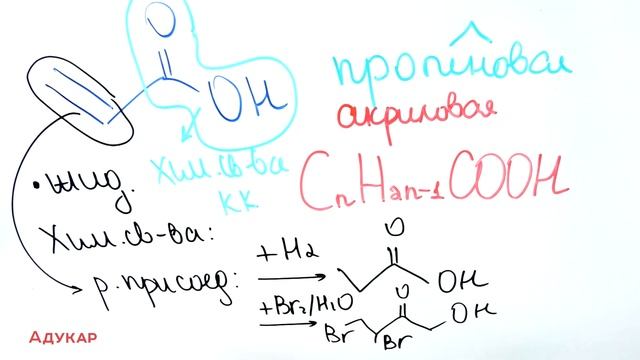 O
OH
пропиновая
акриловая
Хим. св-ва
к.к.
CnH2n-1COOH
• жид.
Хим. св-ва:
р. присоед:
+H2
O
OH
+Br2/H2O
O
OH
Br
Br
Адукар